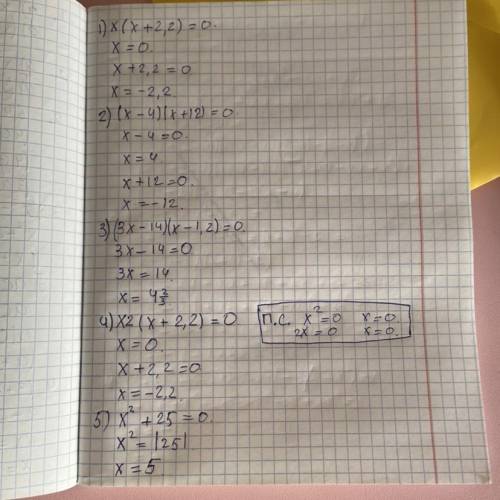 1) x(x+2,2)=0.
x=0.
x+2,2=0
x=-2,2
2) (x-4)(x+12)=0
x-4=0.
x=4
x+12=0.
x=-12.
3) (3x-14)(x-1,2)=0.
3x-14=0
3x=14.
x=4⅔
4) x2(x+2,2)=0
П.С. x²=0 x=0.
2x=0 x=0.
x=0.
x+2,2=0
x=-2,2.
5) x²+25=0.
x²=|25|
x=5